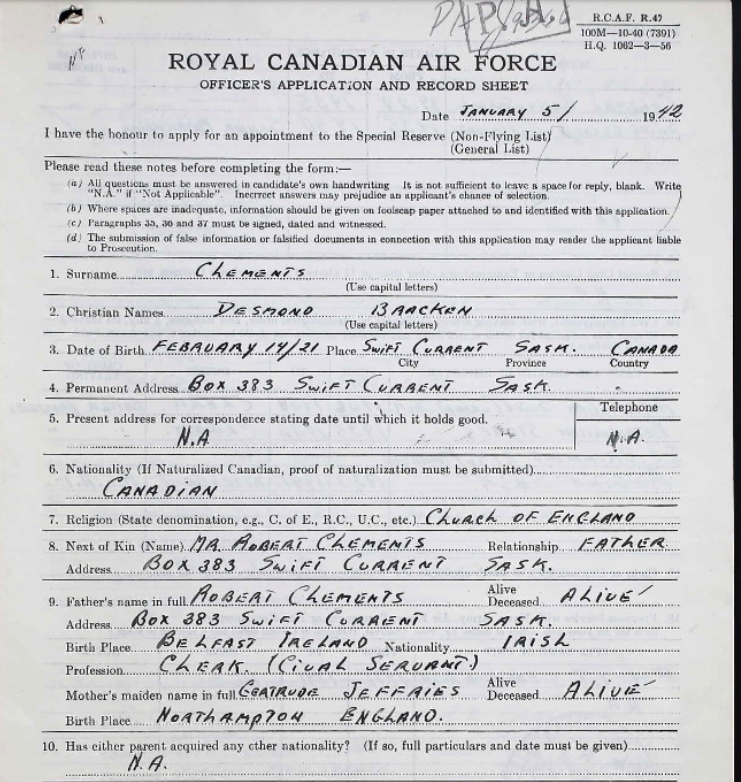 P.A.
R.C.A.F. R.47
100M—10-40 (7391)
H.Q. 1062—3—56
ROYAL CANADIAN AIR FORCE
OFFICER'S APPLICATION AND RECORD SHEET
Date JANUARY 5/ 1942
I have the honour to apply for an appointment to the Special Reserve (Non-Flying List)
(General List)
Please read these notes before completing the form:—
(a) All questions must be answered in candidate's own handwriting It is not sufficient to leave a space for reply, blank. Write
"N.A." if "Not Applicable". Incorrect answers may prejudice an applicant's chance of selection.
(b) Where spaces are inadequate, information should be given on foolscap paper attached to and identified with this application.
(c) Paragraphs 35, 36 and 37 must be signed, dated and witnessed.
(d) The submission of false information or falsified documents in connection with this application may render the applicant liable
to Prosecution.
1. Surname CLEMENTS
(Use capital letters)
2. Christian Names DESMOND BRACKEN
(Use capital letters)
3. Date of Birth FEBRUARY 14/21 Place SWIFT CURRENT SASK. CANADA
City Province Country
4. Permanent Address BOX 383 SWIFT CURRENT SASK.
Telephone
5. Present address for correspondence stating date until which it holds good.
N.A N.A.
6. Nationality (If Naturalized Canadian, proof of naturalization must be submitted)
CANADIAN
7. Religion (State denomination, e.g., C. of E., R.C., U.C., etc.) CHURCH OF ENGLAND
8. Next of Kin (Name) MR. ROBERT CLEMENTS Relationship FATHER
Address BOX 383 SWIFT CURRENT SASK.
9. Father's name in full ROBERT CLEMENTS Alive Deceased ALIVE
Address BOX 383 SWIFT CURRENT SASK.
Birth Place BELFAST IRELAND Nationality IRISH
Profession CLERK. (CIVAL SERVANT.)
Mother's maiden name in full GERTRUDE JEFFRIES Alive Deceased ALIVE
Birth Place NORTHAMPTON ENGLAND.
10. Has either parent acquired any other nationality? (If so, full particulars and date must be given)
N.A.